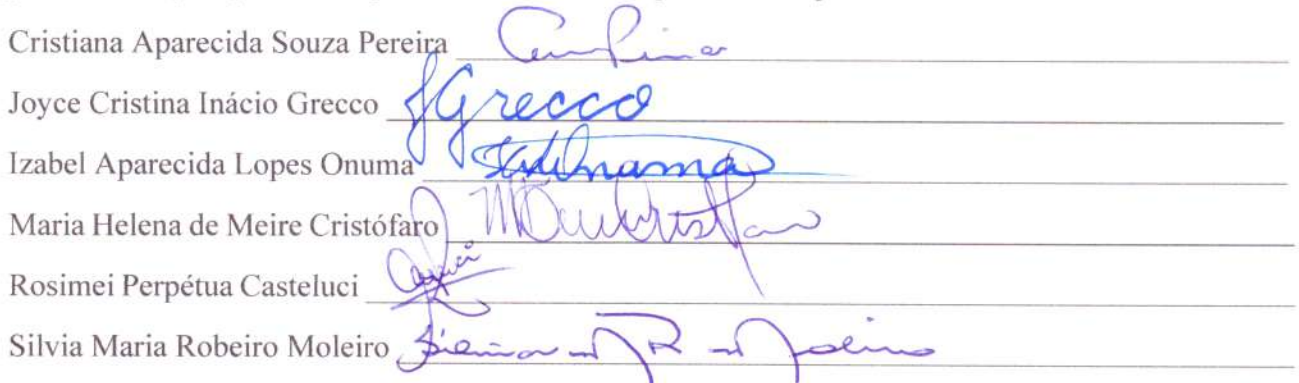 Cristiana Aparecida Souza Pereira
Joyce Cristina Inácio Grecco JGrecco
Izabel Aparecida Lopes Onuma
Maria Helena de Meire Cristófaro
Rosimei Perpétua Casteluci
Silvia Maria Robeiro Moleiro